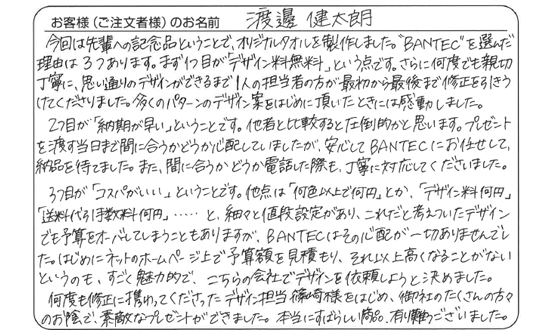 お客様（ご注文者様）のお名前 渡邊 健太朗
今回は先輩への記念品ということで、オリジナルタオルを製作しました。"BANTEC"を選んだ
理由は3つあります。まず1つ目が「デザイン料無料」という点です。さらに何度でも親切
丁寧に、思い通りのデザインができるまで1人の担当者の方が最初から最後まで修正を引きう
けてくださりました。多くのパターンのデザイン案をはじめに頂いたときには感動しました。
2つ目が「納期が早い」ということです。他者と比較すると圧倒的かと思います。プレゼント
を渡す当日まで間に合うかどうか心配していましたが、安心してBANTECにお任せして、
納品を待てました。また、間に合うかどうか電話した際も、丁寧に対応してくださいました。
3つ目が「コスパがいい」ということです。他点は「何色以上で何円」とか、「デザイン料何円」
「送料代引手数料何円」……と、細々と値段設定があり、これだと考えついたデザイン
でも予算をオーバしてしまうこともありますが、BANTECはその心配が一切ありませんでし
た。はじめにネットのホームページ上で予算額を見積もり、それ以上高くなることがない
というのも、すごく魅力的で、こちらの会社でデザインを依頼しようと決めました。
何度も修正に携わってくださったデザイン担当篠崎様をはじめ、御社のたくさんの方々
のお陰で、素敵なプレゼントができました。本当にすばらしい商品、有り難うございました。